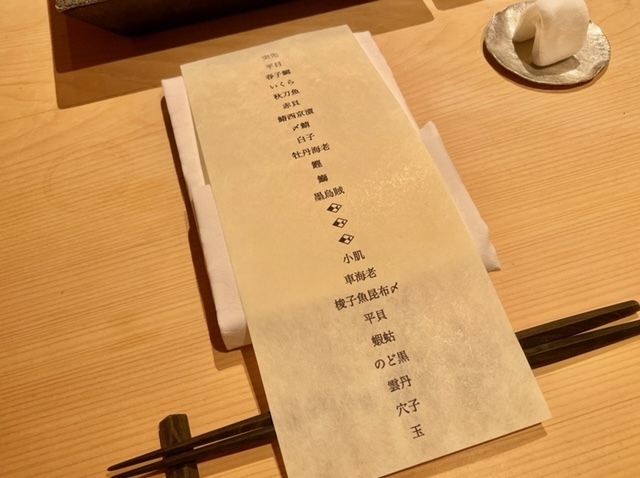 平目
春子鯛
いくら
秋刀魚
赤貝
鰆西京漬
〆鯖
白子
牡丹海老
鰹
鰤
墨烏賊
小肌
車海老
梭子魚昆布〆
平貝
蝦蛄
のど黒
雲丹
穴子
玉